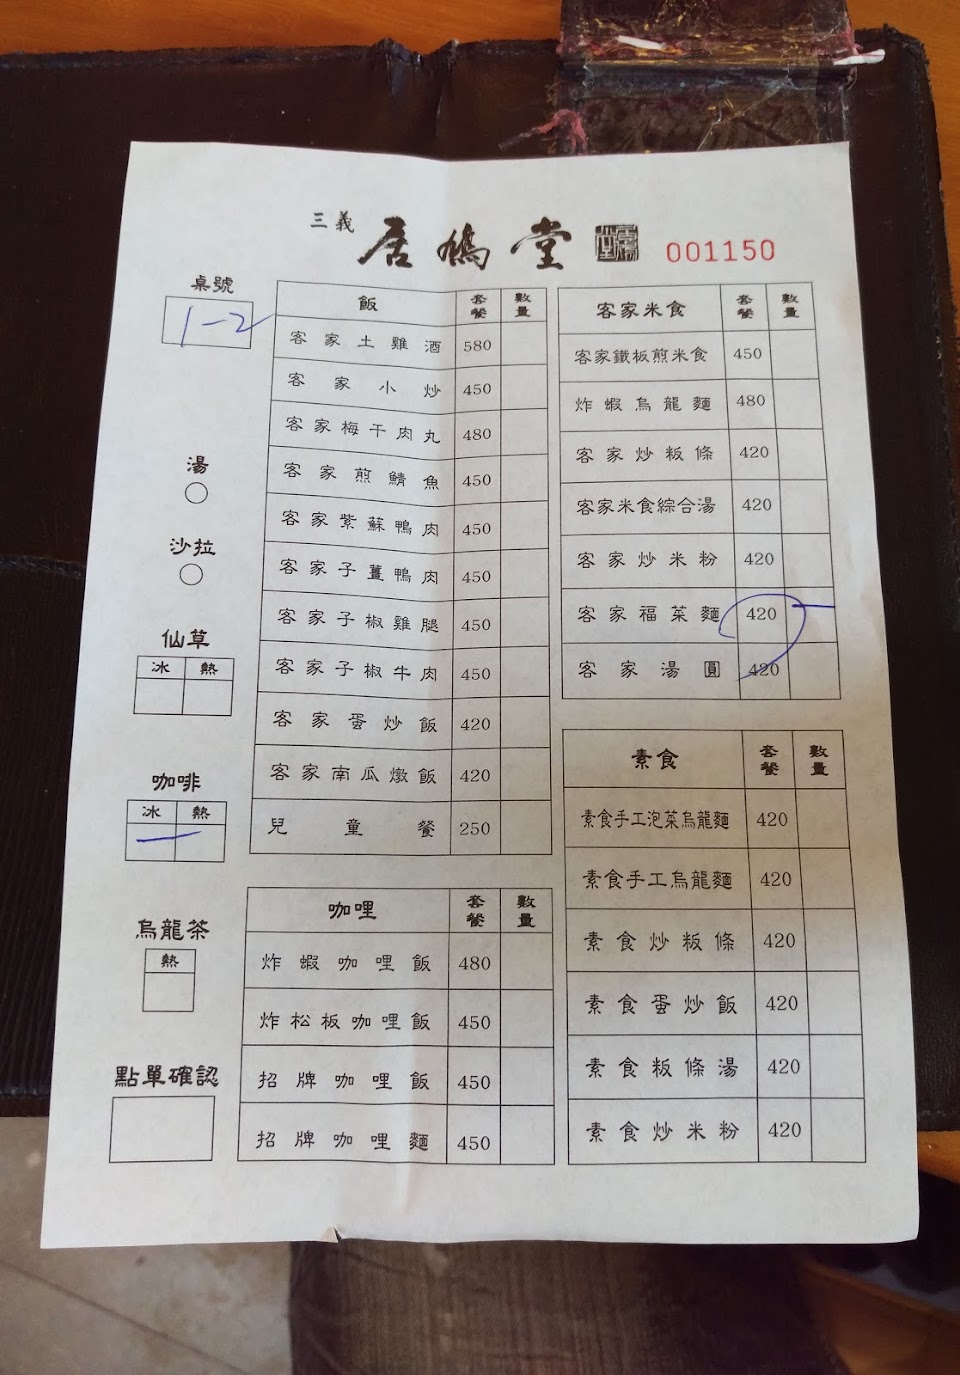 三義 居鳩堂
001150
桌號
1-2
湯
沙拉
仙草
冰 熱
咖啡
冰 熱
烏龍茶
熱
點單確認
飯 套餐 數量
客家土雞酒 580
客家小炒 450
客家梅干肉丸 480
客家煎鯖魚 450
客家紫蘇鴨肉 450
客家子薑鴨肉 450
客家子椒雞腿 450
客家子椒牛肉 450
客家蛋炒飯 420
客家南瓜燉飯 420
兒童餐 250
咖哩 套餐 數量
炸蝦咖哩飯 480
炸松板咖哩飯 450
招牌咖哩飯 450
招牌咖哩麵 450
客家米食 套餐 數量
客家鐵板煎米食 450
炸蝦烏龍麵 480
客家炒粄條 420
客家米食綜合湯 420
客家炒米粉 420
客家福菜麵 420
客家湯圓 420
素食 套餐 數量
素食手工泡菜烏龍麵 420
素食手工烏龍麵 420
素食炒粄條 420
素食蛋炒飯 420
素食粄條湯 420
素食炒米粉 420